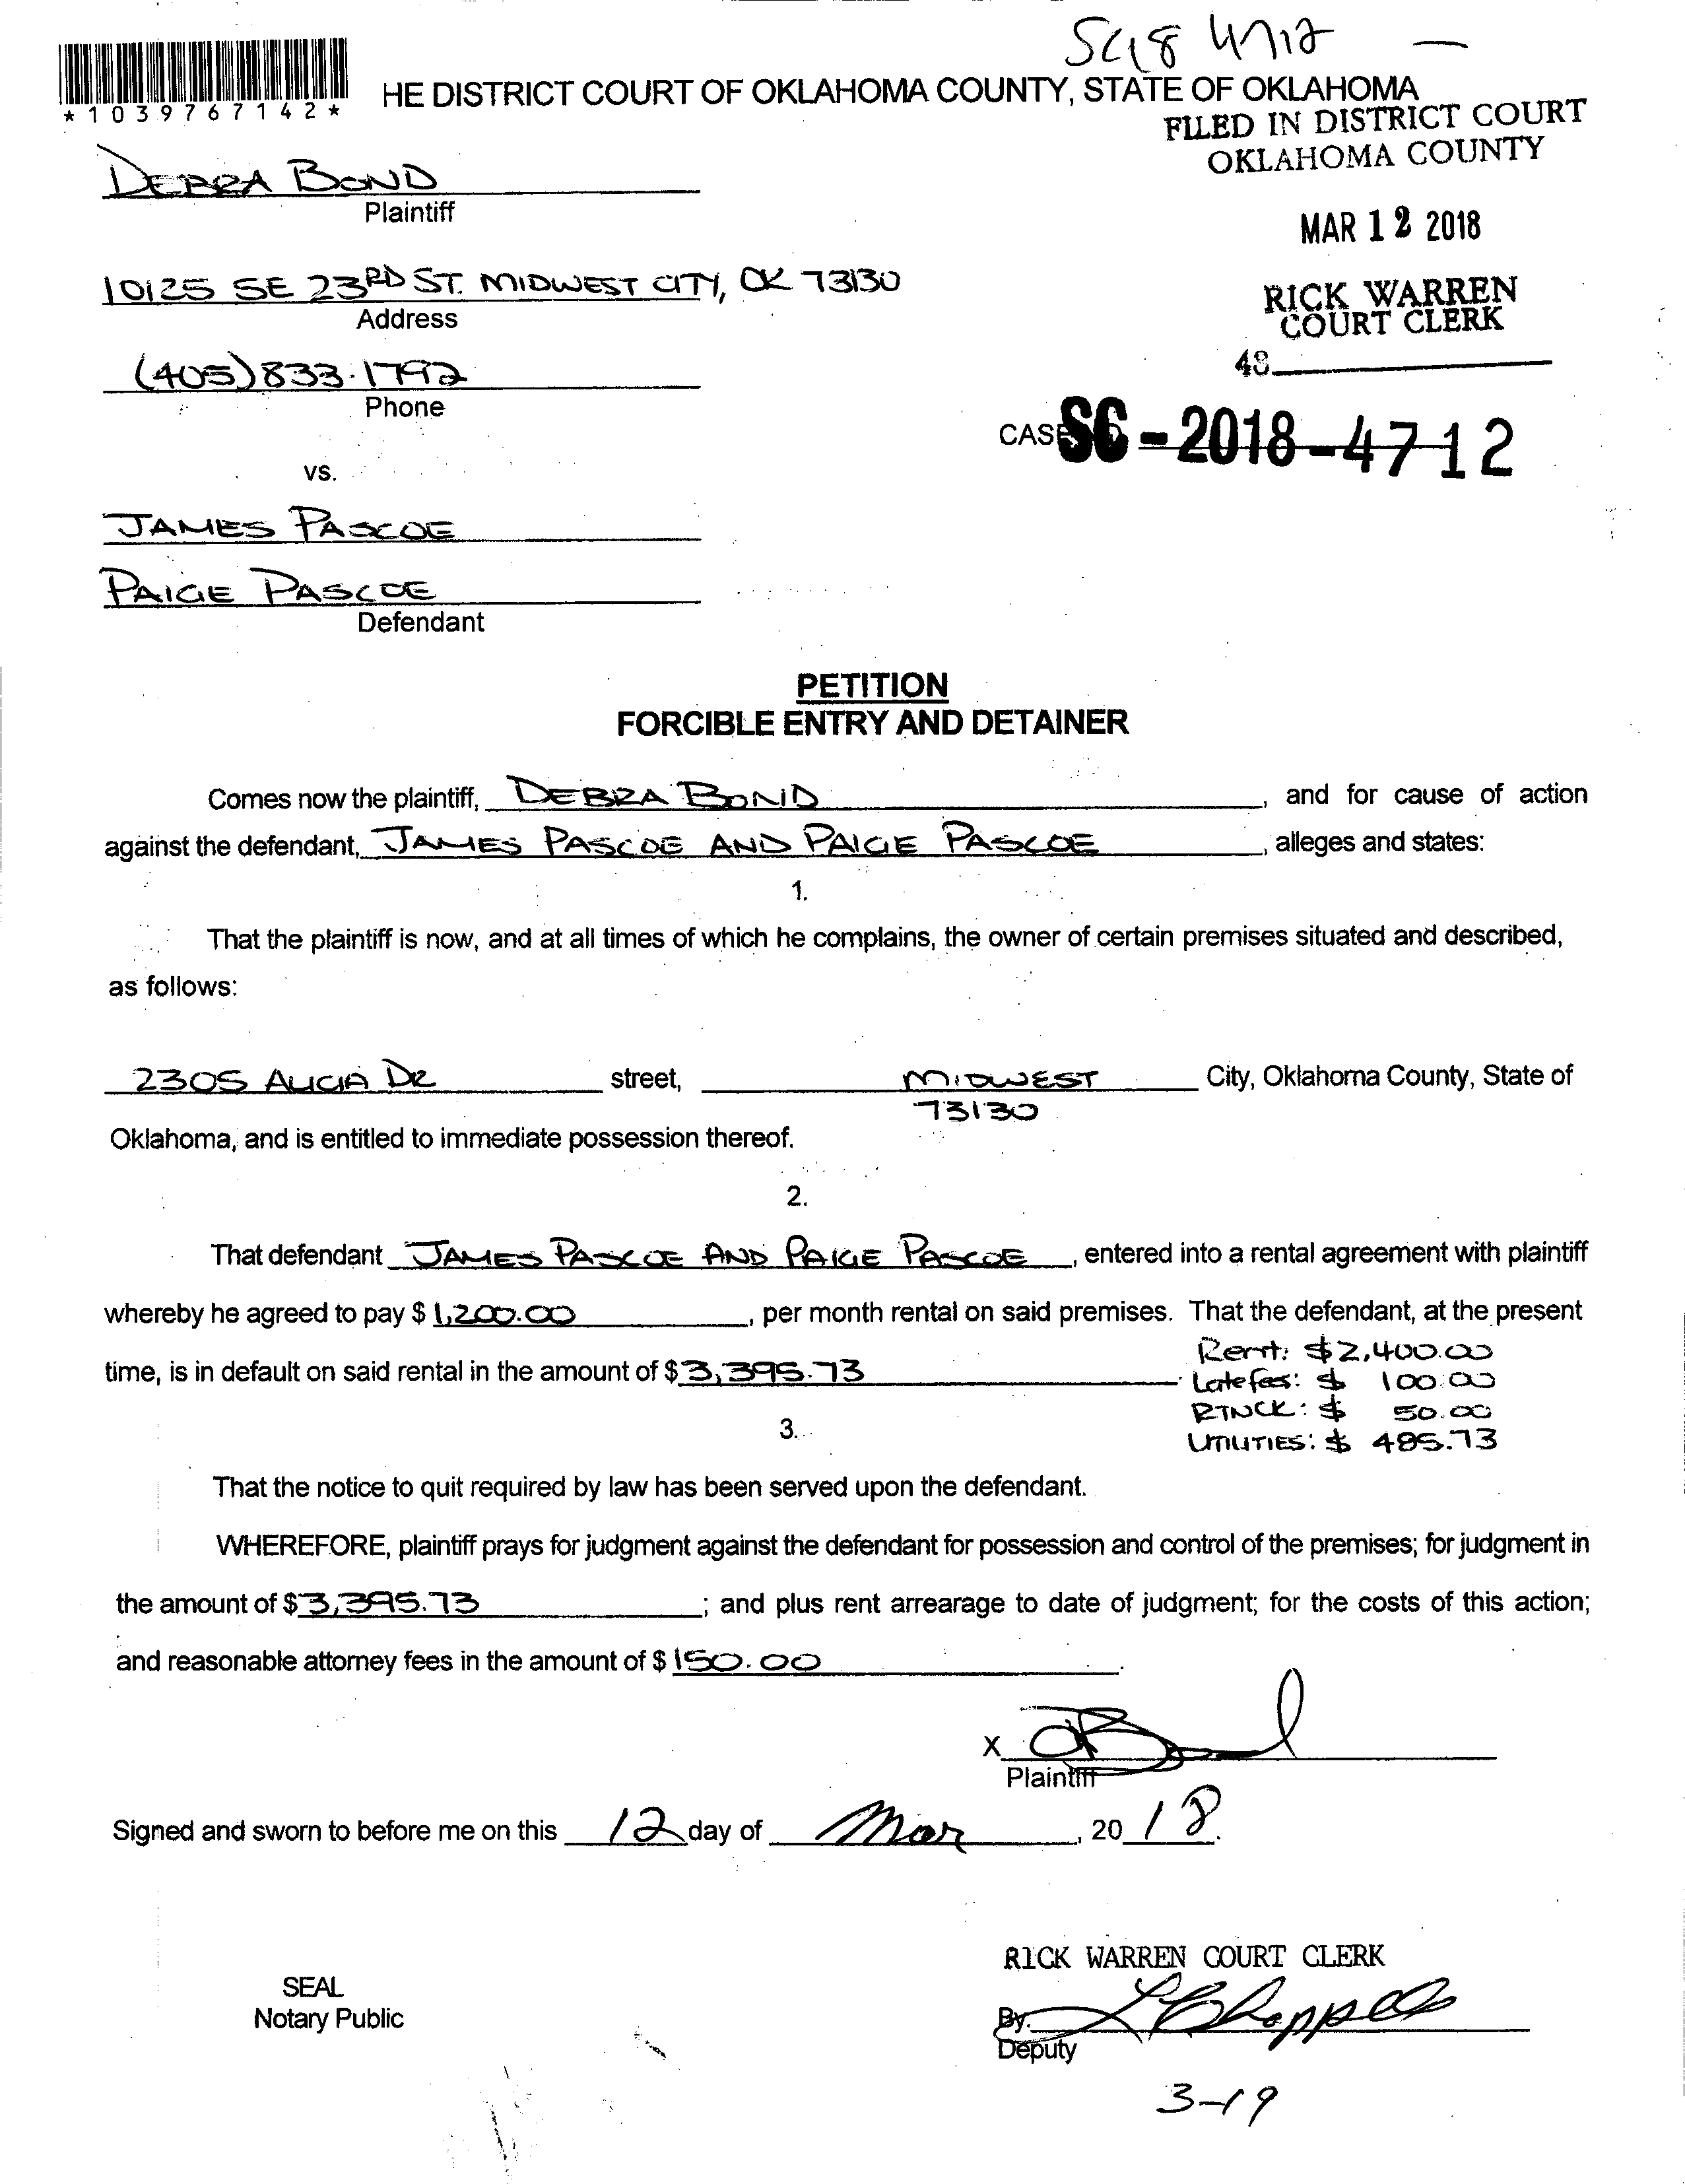 SC18 4712 —
*1039767142*
HE DISTRICT COURT OF OKLAHOMA COUNTY, STATE OF OKLAHOMA
FILED IN DISTRICT COURT
OKLAHOMA COUNTY
DEBRA BOND
Plaintiff
MAR 12 2018
10125 SE 23RD ST. MIDWEST CITY, OK 73130
Address
RICK WARREN
COURT CLERK
48
(405) 833-1792
Phone
CASE SC-2018-4712
vs.
JAMES PASCOE
PAIGE PASCOE
Defendant
PETITION
FORCIBLE ENTRY AND DETAINER
Comes now the plaintiff, DEBRA BOND, and for cause of action
against the defendant, JAMES PASCOE AND PAIGE PASCOE, alleges and states:
1.
That the plaintiff is now, and at all times of which he complains, the owner of certain premises situated and described,
as follows:
2305 ALICIA DR street, MIDWEST City, Oklahoma County, State of
73130
Oklahoma, and is entitled to immediate possession thereof.
2.
That defendant JAMES PASCOE AND PAIGE PASCOE, entered into a rental agreement with plaintiff
whereby he agreed to pay $ 1,200.00, per month rental on said premises. That the defendant, at the present
time, is in default on said rental in the amount of $ 3,395.73.
Rent: $2,400.00
Late fees: $ 100.00
RTNCK: $ 50.00
UTILITIES: $ 485.73
3.
That the notice to quit required by law has been served upon the defendant.
WHEREFORE, plaintiff prays for judgment against the defendant for possession and control of the premises; for judgment in
the amount of $ 3,395.73; and plus rent arrearage to date of judgment; for the costs of this action;
and reasonable attorney fees in the amount of $ 150.00.
X
Plaintiff
Signed and sworn to before me on this 12 day of Mar, 20 18.
RICK WARREN COURT CLERK
SEAL
Notary Public
By: L Chappell
Deputy
3-19